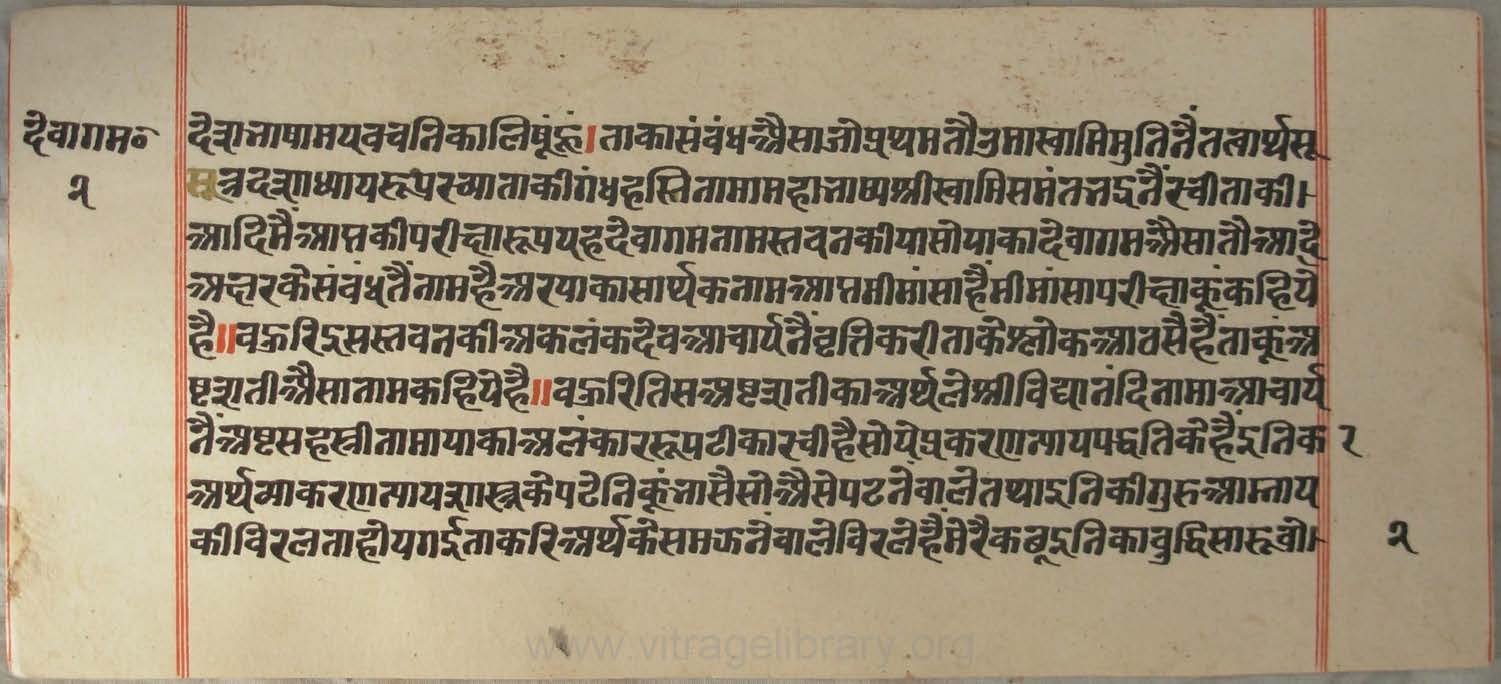 देवागम॰
२
देशभाषामयवचनिकालिषूंहूं। ताकासंबंधअैसाजोप्रथमतौउमास्वामिमुनिनैंतत्वार्थसू
सूत्रदशाध्यायरूपरच्याताकीगंधहस्तिनामामहाभाष्यश्रीस्वामिसमंतभद्रनैंरचीताकी।
आदिमैंआप्तकीपरीक्षारूपयहदेवागमनामस्तवनकीयासोयाकादेवागमअैसातौआदि
अक्षरकेसंबंधतैंनामहैअरयाकासार्थकनामआप्तमीमांसाहैमीमांसापरीक्षाकूंकहिये
है॥वऊरिइसस्तवनकीअकलंकदेवआचार्यनैंवृत्तिकरीताकेश्लोकआठसैहैंताकूंअ
ष्टशतीअैसानामकहियेहै॥वऊरितिसअष्टशतीकाअर्थलेश्रीविद्यानंदिनामाआचार्य
नैंअष्टसहस्त्रीनामायाकाअलंकाररूपटीकारचीहैसोयेप्रकरणन्यायपद्धतिकेहैंइनिक र
अर्थव्याकरणन्यायशास्त्रकेपढेनिकूंभासैसोअैसेपढनेंवालेतथाइनिकीगुरुआम्नाय
कीविरलताहोयगईताकरिअर्थकेसमऊनेंवालेविरलेहैंमेरैकछूइनिकाबुद्धिसारूवो।
२
www.vitragelibrary.org